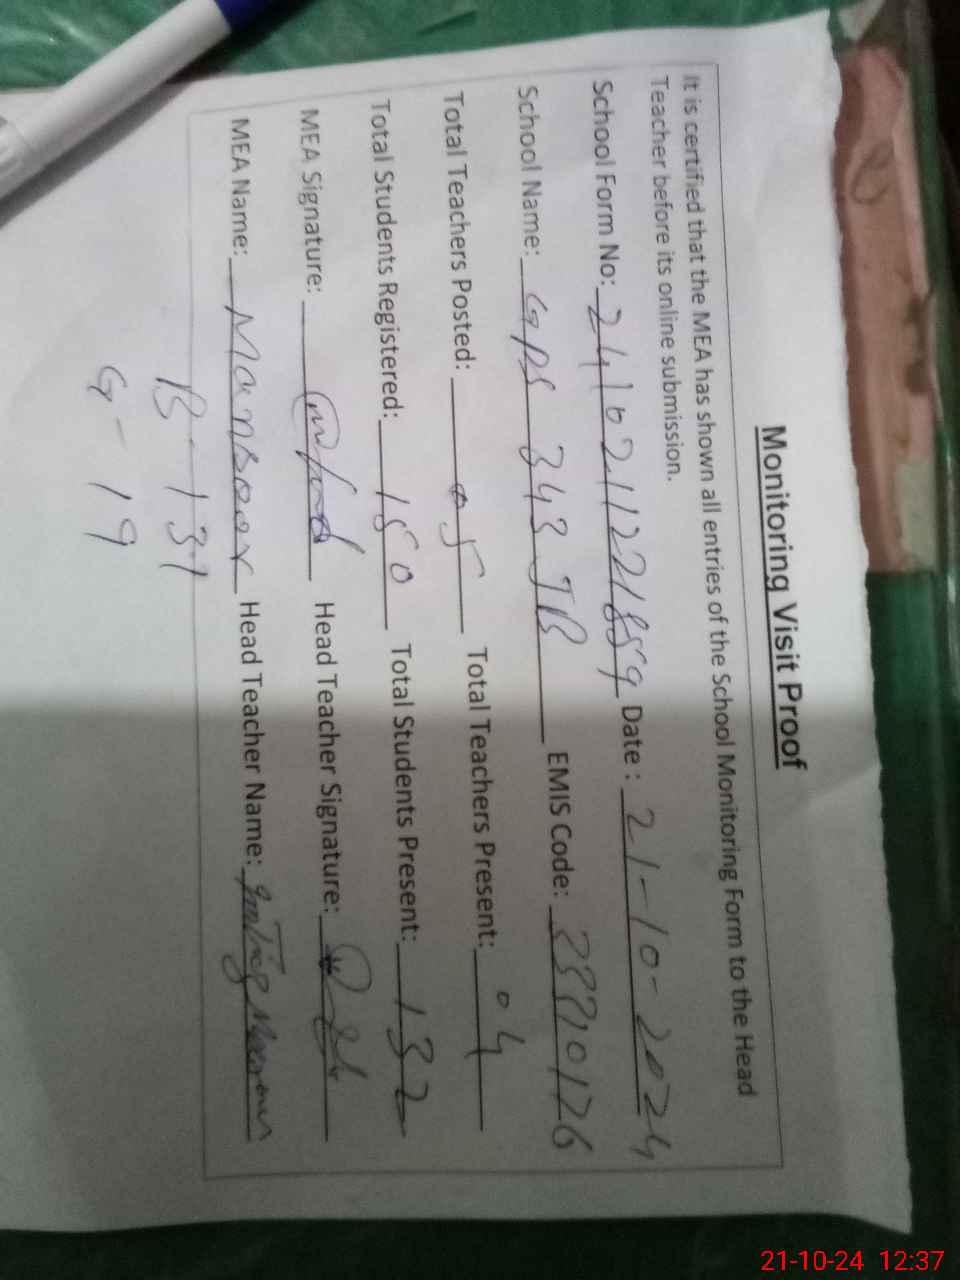 Monitoring Visit Proof
It is certified that the MEA has shown all entries of the School Monitoring Form to the Head
Teacher before its online submission.
School Form No: 2410211221859 Date : 21-10-2024
School Name: GPS 343 JB EMIS Code:
Total Teachers Posted: 05 Total Teachers Present: 04
Total Students Registered: 150 Total Students Present: 132
MEA Signature: Head Teacher Signature:
MEA Name: Mansoor Head Teacher Name:
B-131
G-19
21-10-24 12:37